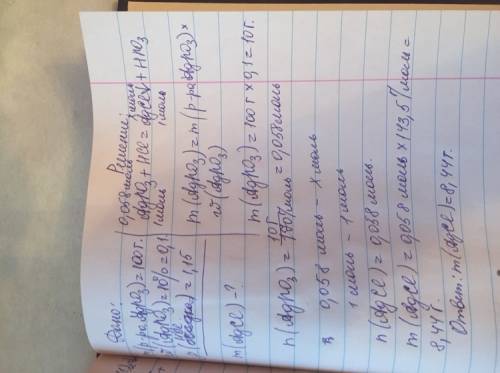 Дано:
m(р-ра AgNO3)=100г.
w(AgNO3)=10%=0,1
=1,15
m(AgCl)-?
Решение:
0,058моль x моль
AgNO3 + HCl = AgCl↓ + HNO3
1моль 1моль
m(AgNO3)=m(р-ра AgNO3)×
w(AgNO3)
m(AgNO3)=100г × 0,1=10г.
n(AgNO3) = 10г / моль = 0,058моль
0,058 моль – x моль
1 моль – 1 моль
n(AgCl) = 0,058 моль.
m(AgCl) = 0,058 моль × 143,5 г/моль =
8,44г.
Ответ: m(AgCl)=8,44г.